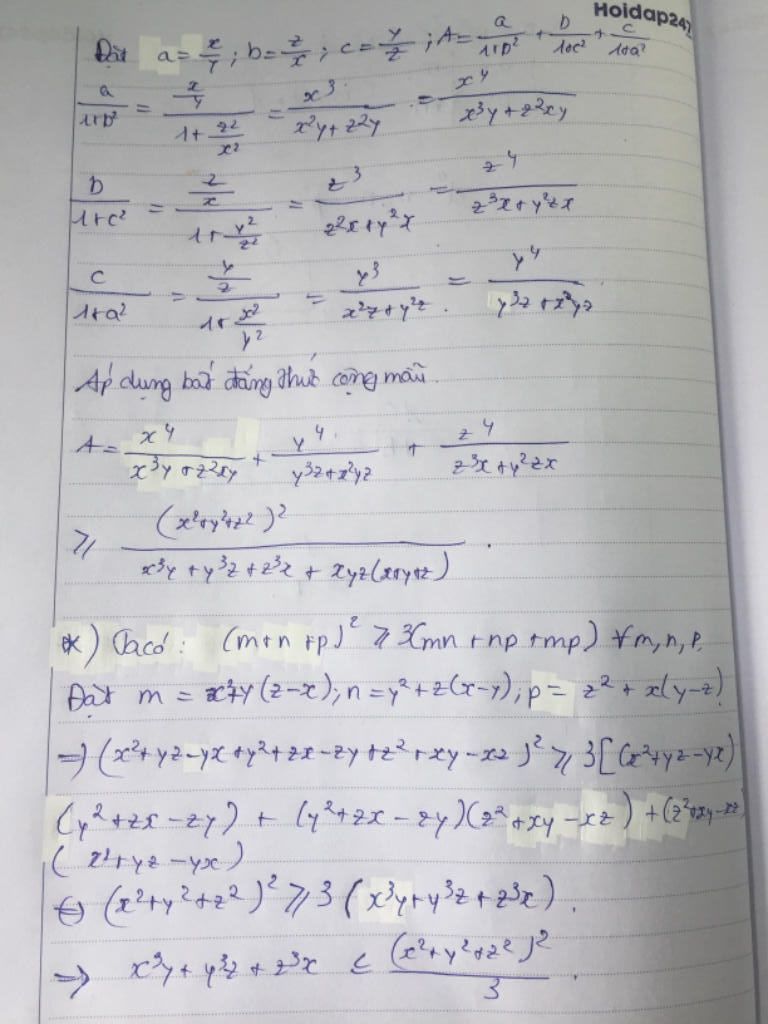 Hoidap247
Đặt a = x/y ; b = z/x ; c = y/z ; A = a/(1+b²) + b/(1+c²) + c/(1+a²)
a/(1+b²) = (x/y)/(1+z²/x²) = x³/(x²y+z²y) = x⁴/(x³y+z²xy)
b/(1+c²) = (z/x)/(1+y²/z²) = z³/(z²x+y²x) = z⁴/(z³x+y²zx)
c/(1+a²) = (y/z)/(1+x²/y²) = y³/(x²z+y²z) = y⁴/(y³z+x²yz)
Áp dụng bất đẳng thức cộng mẫu.
A = x⁴/(x³y+z²xy) + y⁴/(y³z+x²yz) + z⁴/(z³x+y²zx)
≥ (x²+y²+z²)²/(x³y+y³z+z³x + xyz(x+y+z)) .
*) Ta có : (m+n+p)² ≥ 3(mn+np+mp) ∀m,n,p.
Đặt m = x²+y(z-x); n = y²+z(x-y); p = z²+x(y-z)
=) (x²+yz-yx+y²+zx-zy+z²+xy-xz)² ≥ 3[(x²+yz-yx)
(y²+zx-zy) + (y²+zx-zy)(z²+xy-xz) + (z²+xy-xz)
(x²+yz-yx)
⇔ (x²+y²+z²)² ≥ 3(x³y+y³z+z³x).
=> x³y+y³z+z³x ≤ (x²+y²+z²)²/3 .